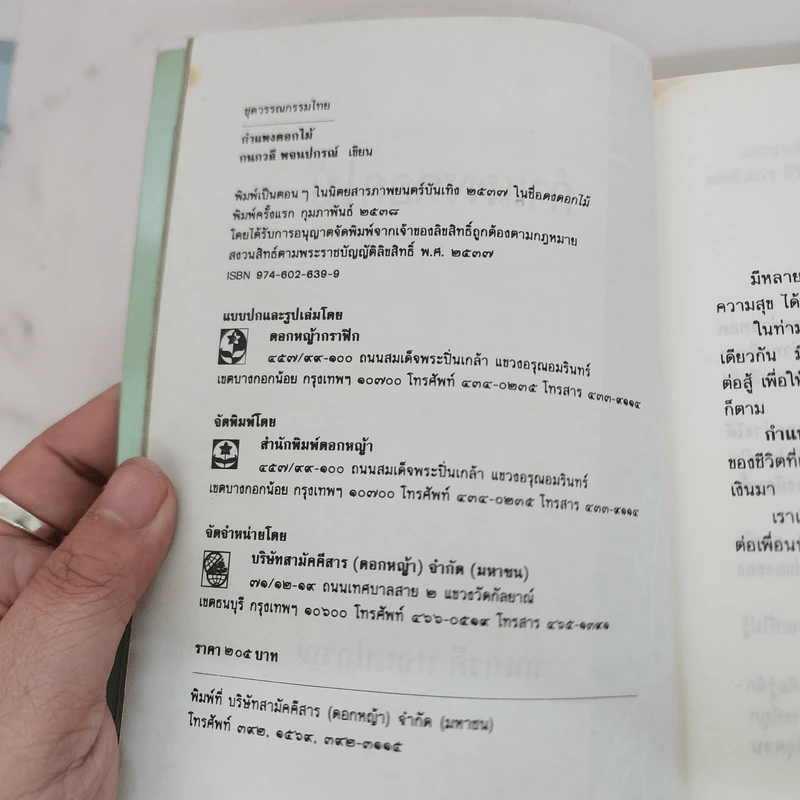 ชุดวรรณกรรมไทย
กำแพงดอกไม้
กนกวลี พจนปกรณ์ เขียน
พิมพ์เป็นตอน ๆ ในนิตยสารภาพยนตร์บันเทิง ๒๕๓๗ ในชื่อดงดอกไม้
พิมพ์ครั้งแรก กุมภาพันธ์ ๒๕๓๘
โดยได้รับการอนุญาตจัดพิมพ์จากเจ้าของลิขสิทธิ์ถูกต้องตามกฎหมาย
สงวนสิทธิ์ตามพระราชบัญญัติลิขสิทธิ์ พ.ศ. ๒๕๓๗
ISBN 974-602-639-9
แบบปกและรูปเล่มโดย
ดอกหญ้ากราฟิก
๔๕๗/๙๙-๑๐๐ ถนนสมเด็จพระปิ่นเกล้า แขวงอรุณอมรินทร์
เขตบางกอกน้อย กรุงเทพฯ ๑๐๗๐๐ โทรศัพท์ ๔๓๔-๐๒๓๕ โทรสาร ๔๓๓-๙๑๑๔
จัดพิมพ์โดย
สำนักพิมพ์ดอกหญ้า
๔๕๗/๙๙-๑๐๐ ถนนสมเด็จพระปิ่นเกล้า แขวงอรุณอมรินทร์
เขตบางกอกน้อย กรุงเทพฯ ๑๐๗๐๐ โทรศัพท์ ๔๓๔-๐๒๓๕ โทรสาร ๔๓๓-๙๑๑๔
จัดจำหน่ายโดย
บริษัทสามัคคีสาร (ดอกหญ้า) จำกัด (มหาชน)
๗๑/๑๒-๑๙ ถนนเทศบาลสาย ๒ แขวงวัดกัลยาณ์
เขตธนบุรี กรุงเทพฯ ๑๐๖๐๐ โทรศัพท์ ๔๖๖-๐๕๑๙ โทรสาร ๔๖๕-๑๓๙๑
ราคา ๒๐๕ บาท
พิมพ์ที่ บริษัทสามัคคีสาร (ดอกหญ้า) จำกัด (มหาชน)
โทรศัพท์ ๓๙๒, ๑๕๖๙, ๓๙๒-๓๑๑๕
มีหลาย
ความสุข ได้
ในท่าม
เดียวกัน มี
ต่อสู้ เพื่อให้
ก็ตาม
กำแพ
ของชีวิตที่
เงินมา
เราเ
ต่อเพื่อน